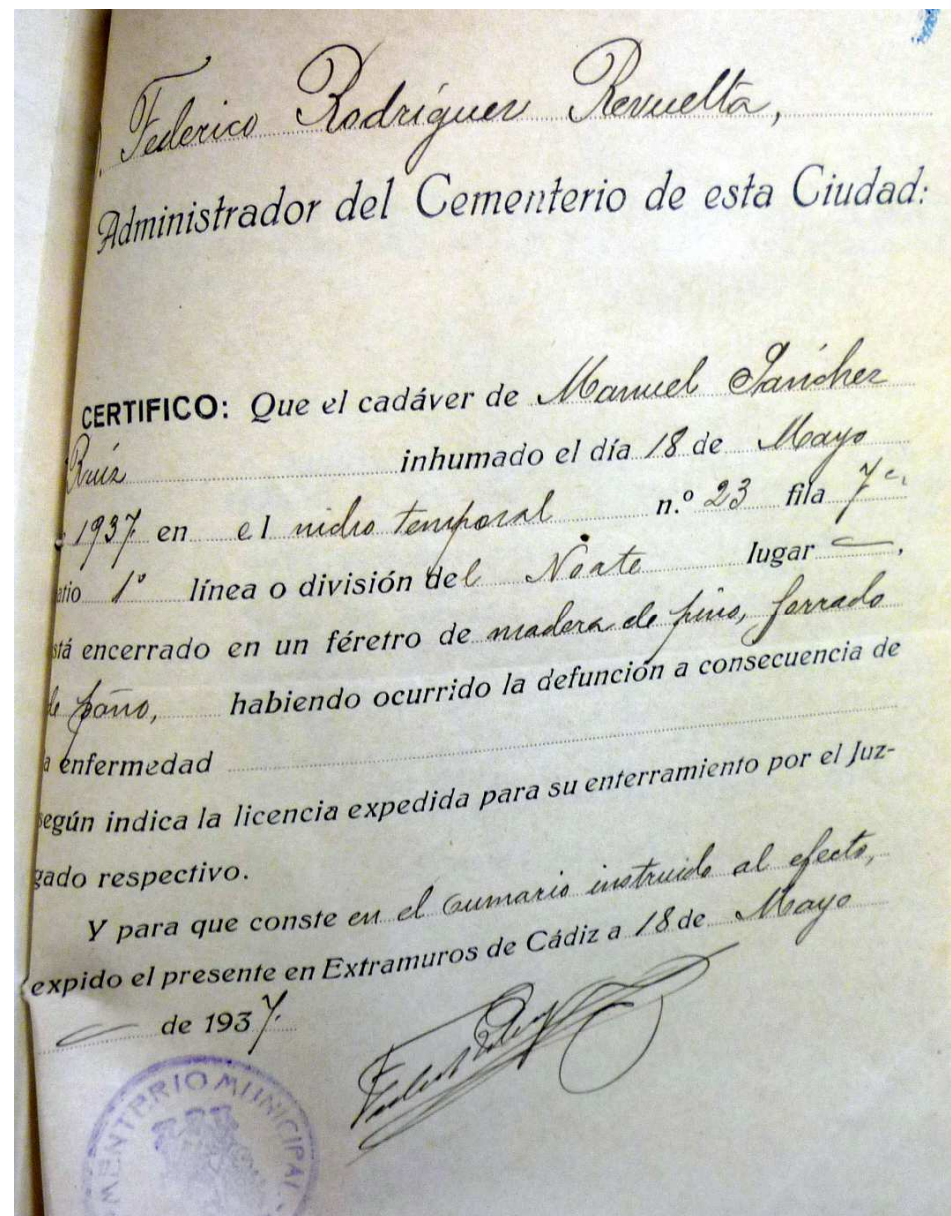 Federico Rodríguez Revuelta,
Administrador del Cementerio de esta Ciudad:
CERTIFICO: Que el cadáver de Manuel Sánchez
Ruíz inhumado el día 18 de Mayo
1937. en el nicho temporal n.º 23 fila 7ª
atio 1º línea o división del Norte lugar —,
stá encerrado en un féretro de madera de pino, forrado
de paño, habiendo ocurrido la defunción a consecuencia de
a enfermedad
según indica la licencia expedida para su enterramiento por el Juz-
gado respectivo.
Y para que conste en el sumario instruido al efecto,
expido el presente en Extramuros de Cádiz a 18 de Mayo
— de 1937.
MENTERIO MUNICIPAL